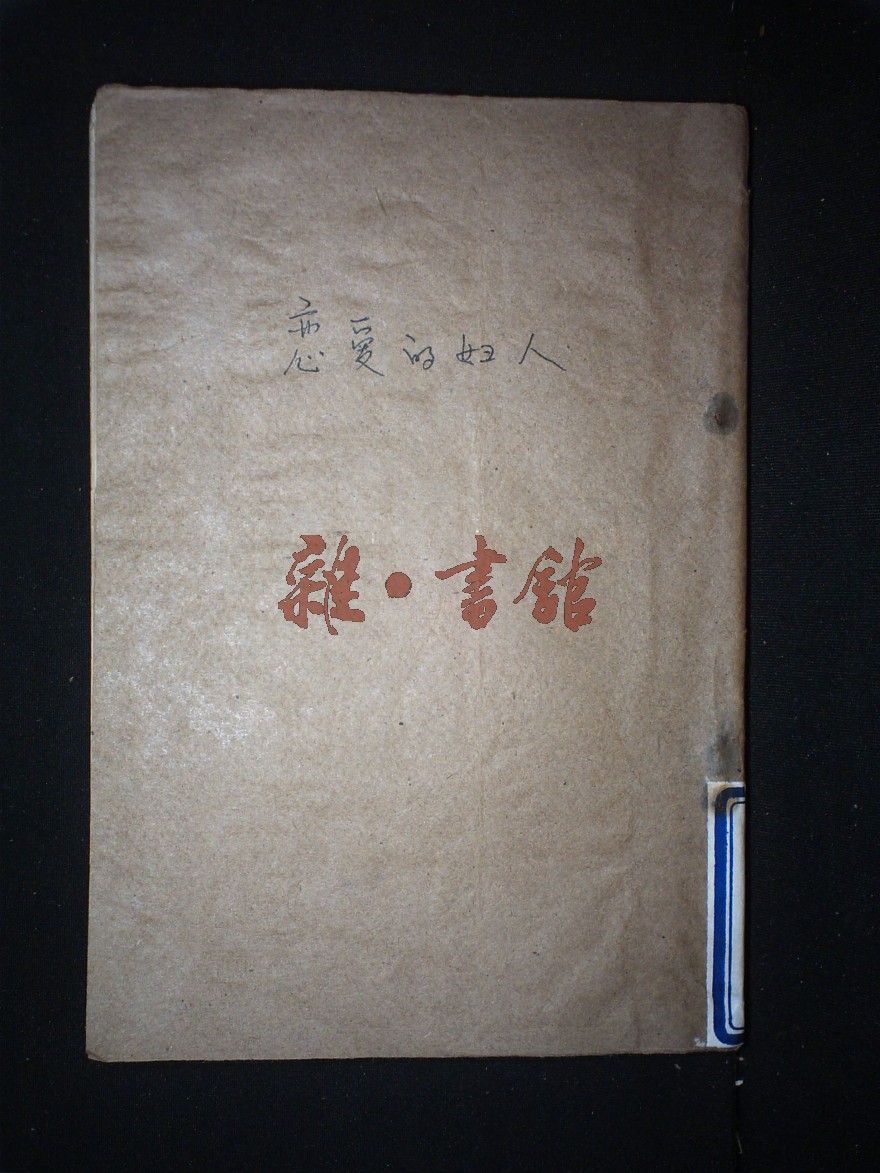 恋爱的妇人
雜·書館